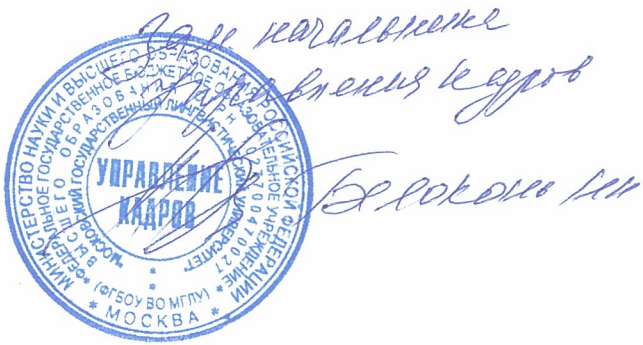 Зам начальника
Управления кадров
Белоконь
МИНИСТЕРСТВО НАУКИ И ВЫСШЕГО ОБРАЗОВАНИЯ РОССИЙСКОЙ ФЕДЕРАЦИИ
ФЕДЕРАЛЬНОЕ ГОСУДАРСТВЕННОЕ БЮДЖЕТНОЕ ОБРАЗОВАТЕЛЬНОЕ УЧРЕЖДЕНИЕ
ВЫСШЕГО ОБРАЗОВАНИЯ
"МОСКОВСКИЙ ГОСУДАРСТВЕННЫЙ ЛИНГВИСТИЧЕСКИЙ УНИВЕРСИТЕТ"
УПРАВЛЕНИЕ
КАДРОВ
(ФГБОУ ВО МГЛУ)
* МОСКВА *